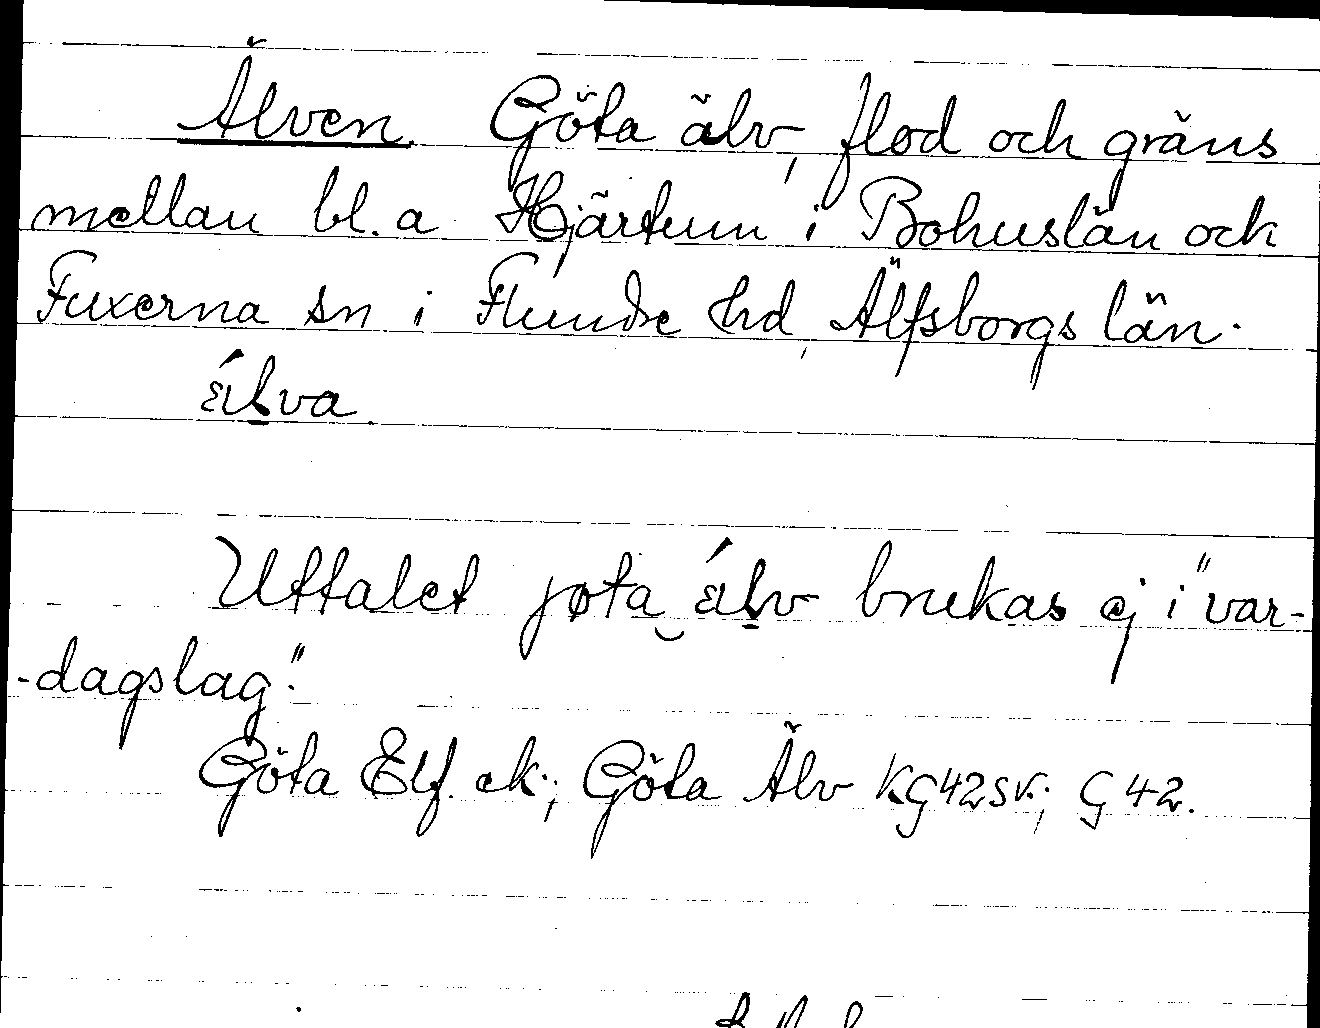 Älven. Göta älv, flod och gräns
mellan bl.a. Hjärtum i Bohuslän och
Fuxerna sn i Flundre hd, Älfsborgs län.
ä́ḷva.
Uttalet jøta ä́ḷv brukas ej i "var-
-dagslag".
Göta Elf. ek.; Göta Älv KG42SV.; G 42.